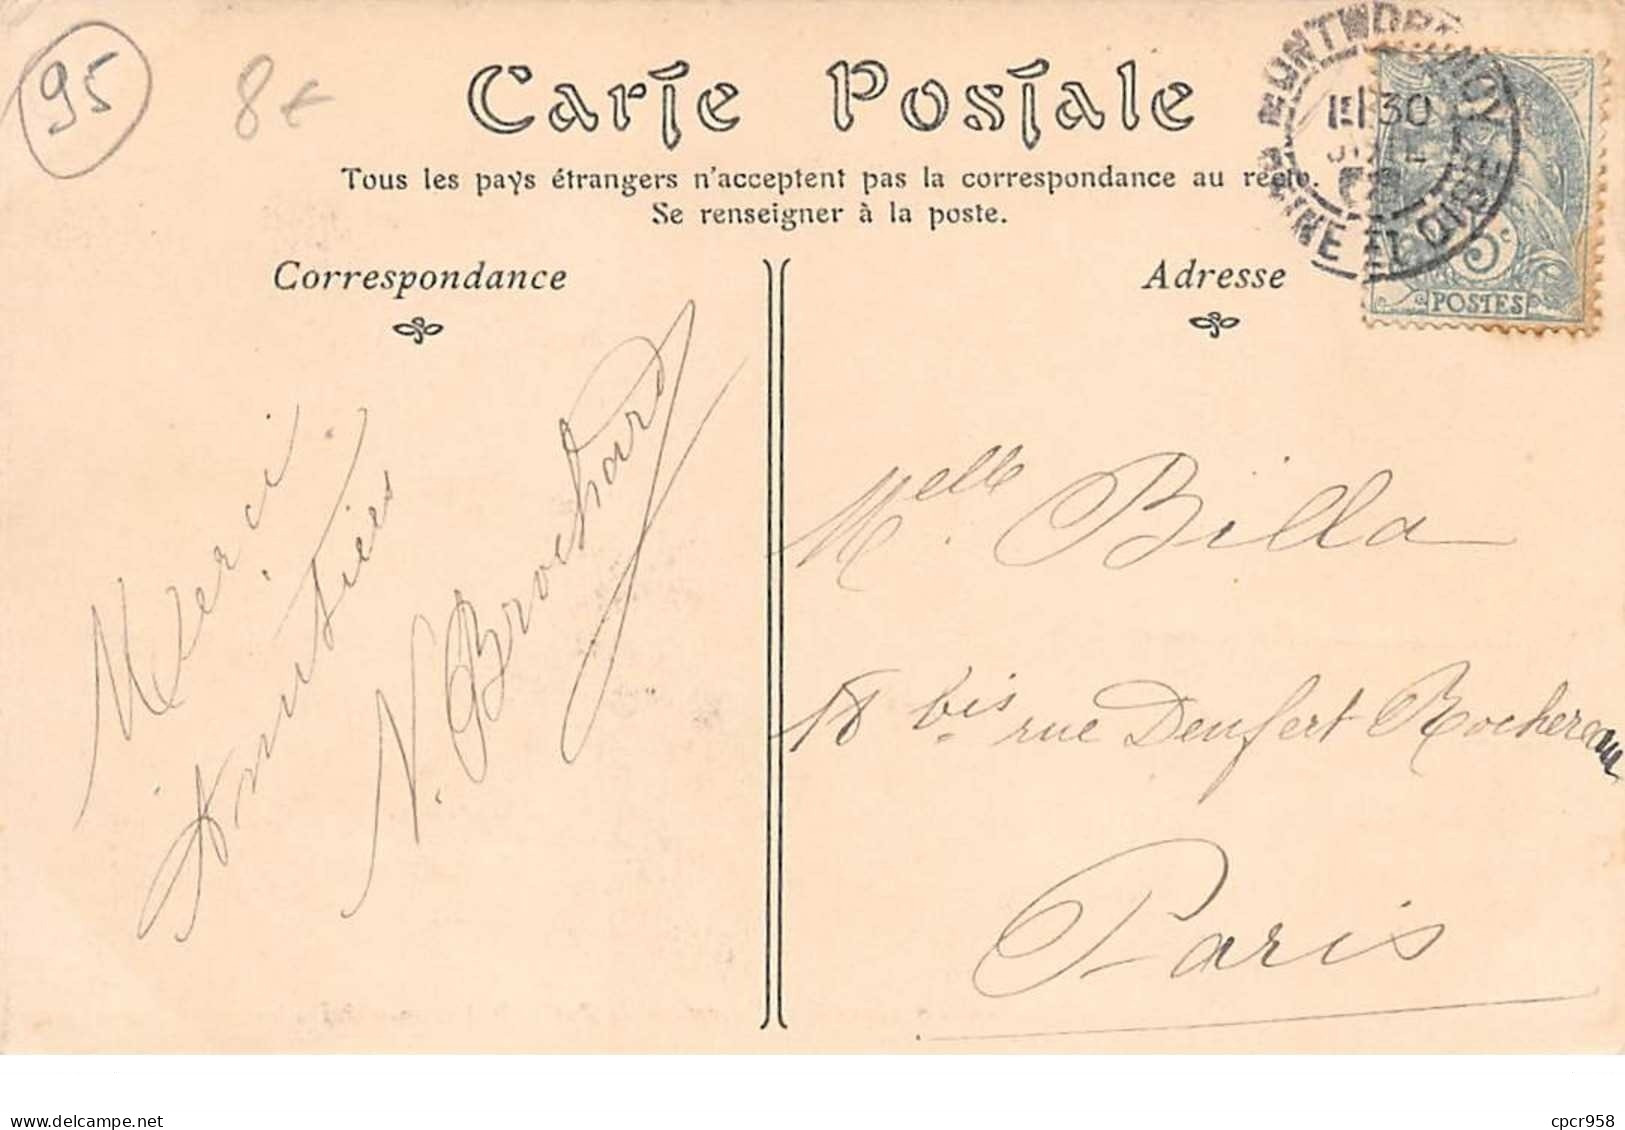 95
8€
Carte Postale
Tous les pays étrangers n'acceptent pas la correspondance au recto.
Se renseigner à la poste.
MONTMORENCY
SEINE ET OISE
30
5c
POSTES
Correspondance
Merci
Amitiés
N. Brochard
Adresse
Melle Billa
18 bis rue Denfert Rochereau
Paris
delcampe.net
cpcr958